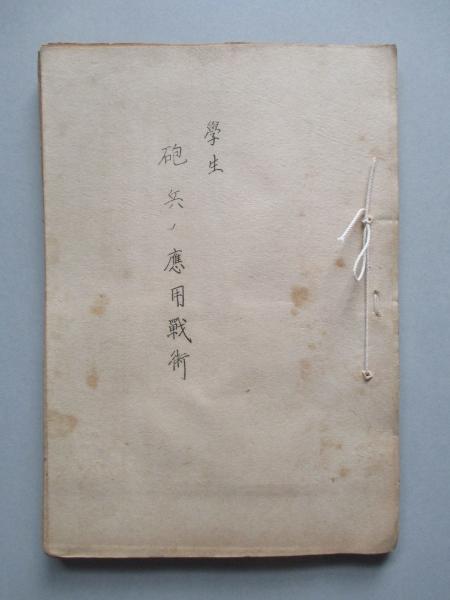 學生
砲兵ノ應用戰術